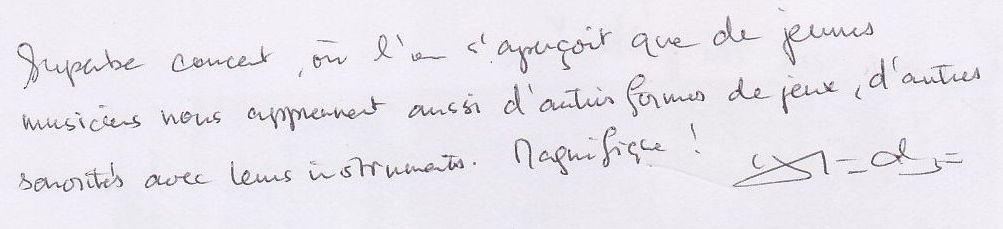 Superbe concert, où l'on s'aperçoit que de jeunes
musiciens nous apprennent aussi d'autres formes de jeux, d'autres
sonorités avec leurs instruments. Magnifique !